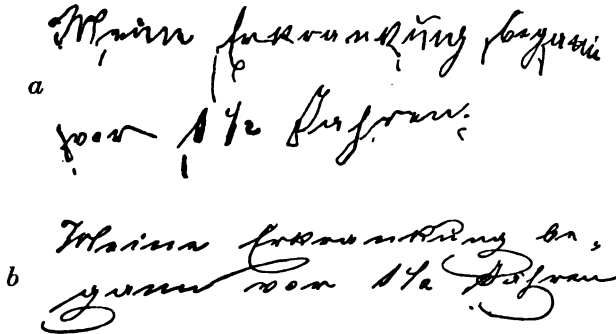 a
Meine Erkrankung begann
vor 1 1/2 Jahren.
b
Meine Erkrankung be-
gann vor 1 1/2 Jahren